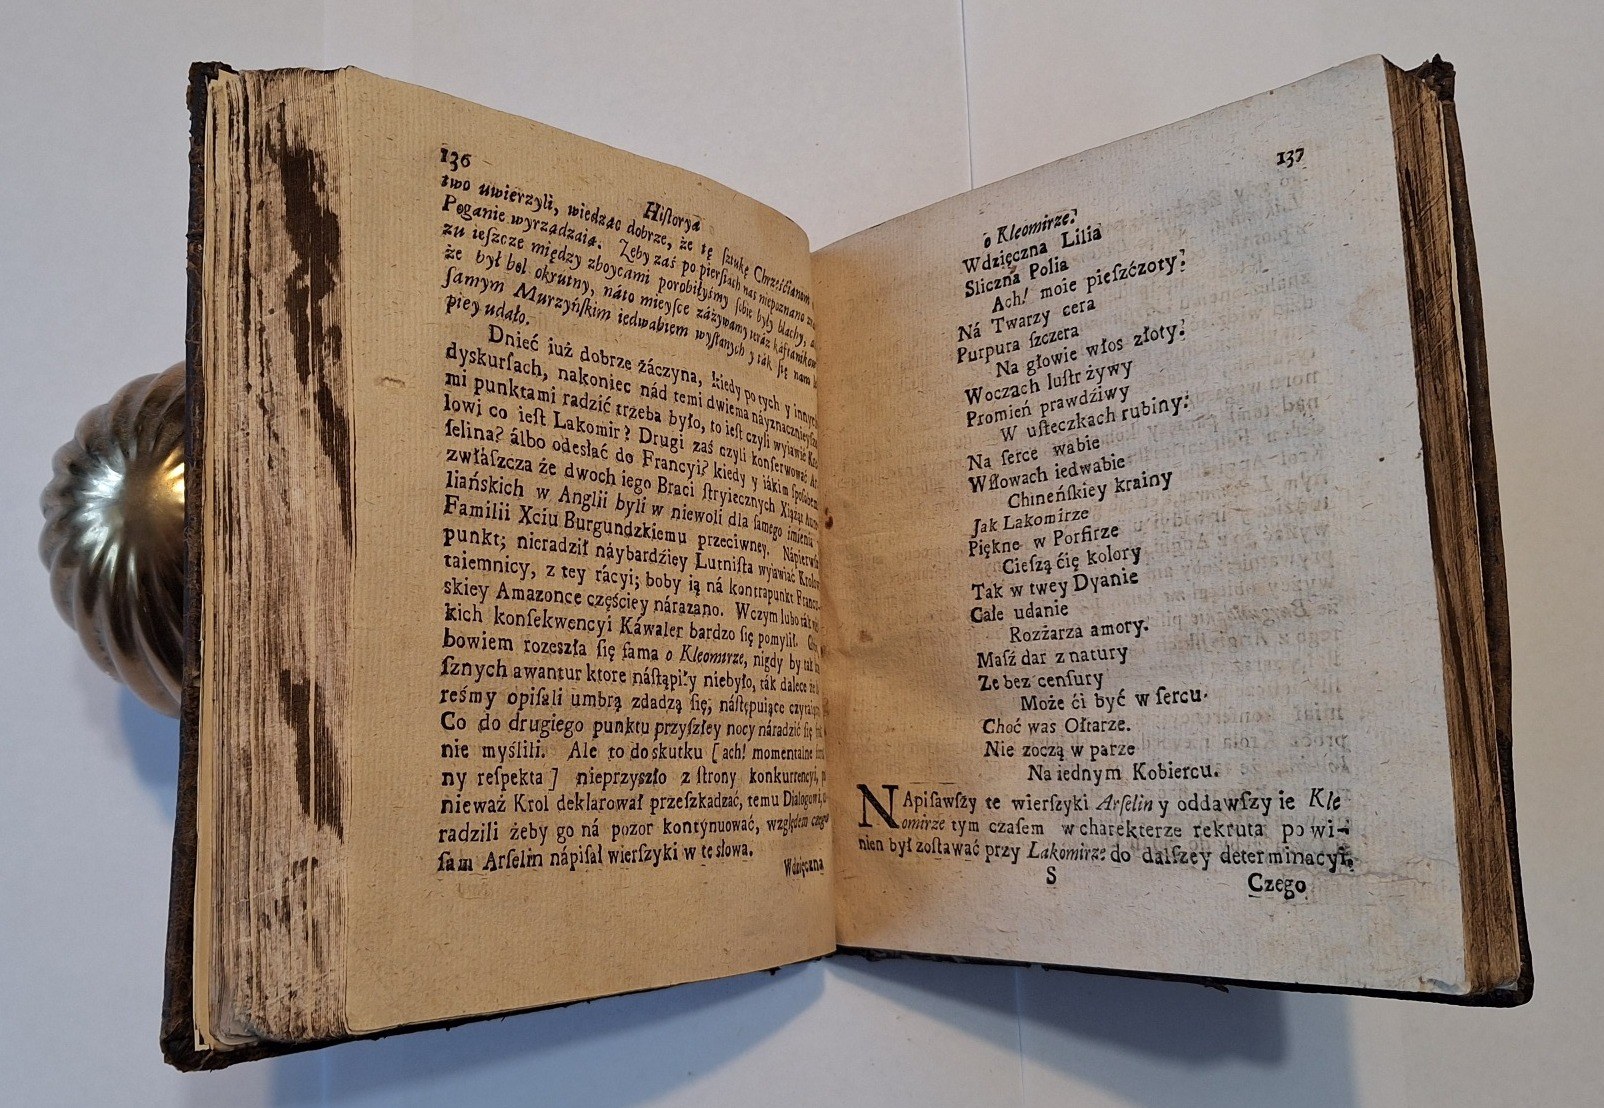 136
Hiſtorya
two uwierzyli, wiedząc dobrze, że tę ſztukę Chrześćianom
Poganie wyrządzaią. Żeby zaś po pierśiach nas niepoznano
zu ieſzcze między zboycami porobiłyśmy ſobie były blachy,
że był bol okrutny, náto mieyſce záżywamy teraz kaftanikow
ſamym Murzyńſkim iedwabiem wyſłanych y tak ſię nam
piey udało.
Dnieć iuż dobrze żáczyna, kiedy po tych y innych
dyskurſach, nakoniec nád temi dwiema náyznacznieyſze
mi punktami radzić trzeba było, to ieſt czyli wyiawić
lowi co ieſt Lakomir? Drugi zaś czyli konſerwować Ar
ſelina? álbo odesłać do Francyi? kiedy y iákim ſpoſobem
zwłáſzcza że dwoch iego Braci ſtryiecznych Xiążąt
liańskich w Anglii byli w niewoli dla ſamego imienia
Familii Xciu Burgundzkiemu przeciwney. Nápierwſzy
punkt; nieradził náybardźiey Lutniſta wyiawiáć
taiemnicy, z tey rácyi; boby ią ná kontrapunkt
skiey Amazonce częśćiey nárazano. Wczym lubo ták
kich konſekwencyi Káwaler bardzo ſię pomylił.
bowiem rozeszła ſię fama o Kleomirze, nigdy by tak
ſznych awantur ktore náſtąpiły niebyło, ták dalece że
reśmy opiſali umbrą zdadzą ſię; náſtępuiące
Co do drugiego punktu przyſzłey nocy náradzić ſię
nie myślili. Ale to do skutku [ach! momentalne
ny reſpekta] nieprzyszło z ſtrony konkurrencyi,
nieważ Krol deklarował przeſzkadzać, temu Dialogowi,
radzili żeby go ná pozor kontynuować, względem czego
ſam Arſelin nápiſał wierſzyki w te słowa.
Wdzięczna
137
o Kleomirze.
Wdzięczna Lilia
Sliczna Polia
Ach! moie pieſzćzoty!
Ná Twarzy cera
Purpura ſzczera
Na głowie włos złoty!
Woczach luſtr żywy
Promień prawdźiwy
W uſteczkach rubiny!
Na ſerce wabie
Włowach iedwabie
Chineńſkiey krainy
Jak Lakomirze
Piękne w Porfirze
Cieſzą ćię kolory
Tak w twey Dyanie
Całe udanie
Rozżarza amory.
Maſź dar z natury
Ze bez cenſury
Może ći być w ſercu.
Choć was Ołtarze.
Nie zoczą w parze
Na iednym Kobiercu.
NApiſawſzy te wierſzyki Arſelin y oddawſzy ie Kle
omirze tym czaſem w charekterze rekruta powi-
nien był zoſtawać przy Lakomirze do dalſzey determinacyi,
S
Czego